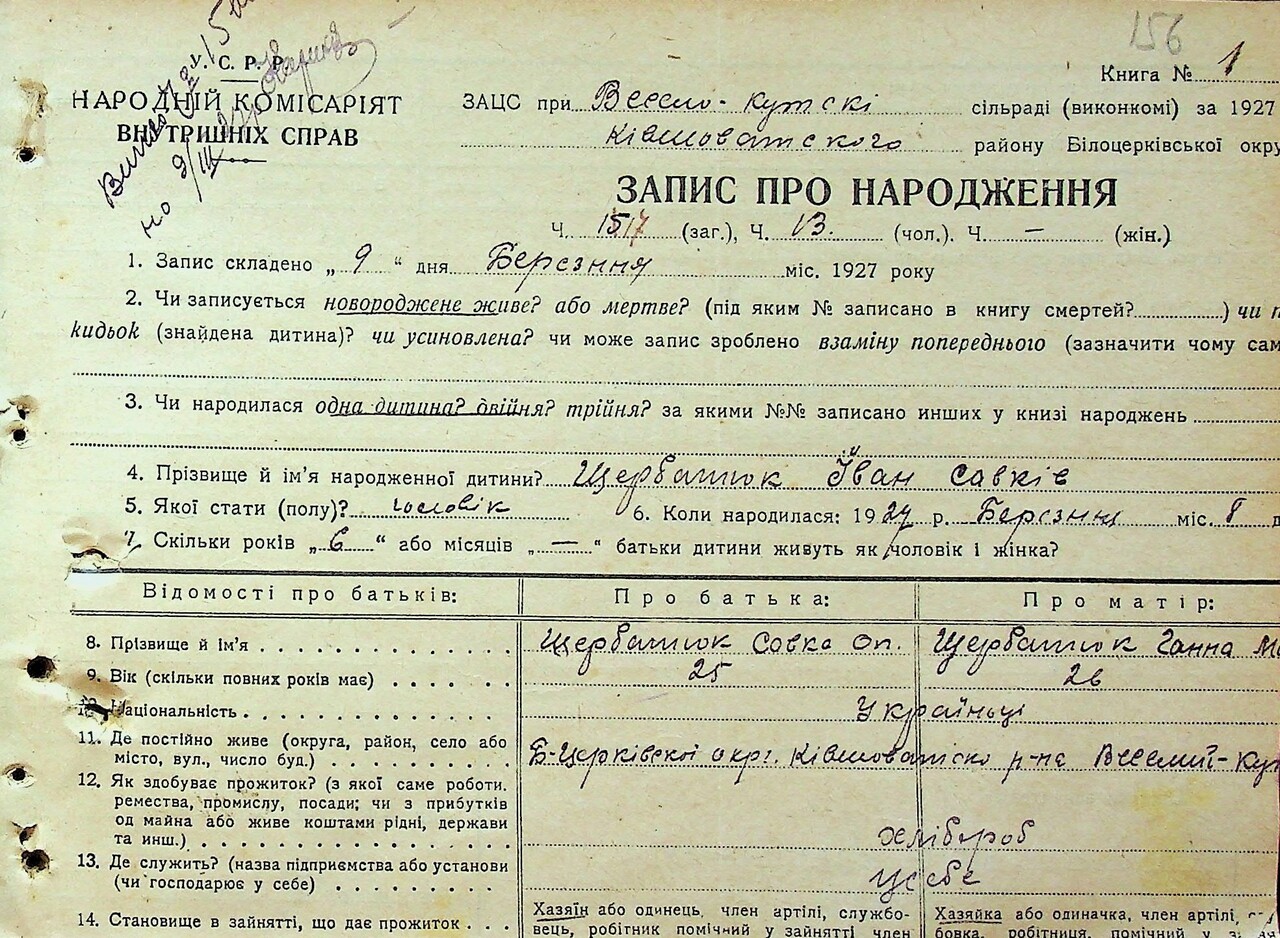 156
У. С. Р. Р.
НАРОДНІЙ КОМІСАРІЯТ
ВНУТРІШНІХ СПРАВ
но 9/III
Книга № 1
ЗАЦС при Весело-кутскі сільраді (виконкомі) за 1927
Ківшоватского району Білоцерківської окру
ЗАПИС ПРО НАРОДЖЕННЯ
Ч. 1517 (заг.), Ч. 13. (чол.). Ч. — (жін.)
1. Запис складено „ 9 “ дня Березння міс. 1927 року
2. Чи записується новороджене живе? або мертве? (під яким № записано в книгу смертей?..........) чи п
кидьок (знайдена дитина)? чи усиновлена? чи може запис зроблено взаміну попереднього (зазначити чому сам
3. Чи народилася одна дитина? двійня? трійня? за якими №№ записано инших у книзі народжень
4. Прізвище й ім'я народженної дитини? Щербатюк Іван Савків
5. Якої стати (полу)? чоловік 6. Коли народилася: 1927 р. Березння міс. 8 д
7. Скільки років „ 6 “ або місяців „ — “ батьки дитини живуть як чоловік і жінка?
Відомості про батьків: Про батька: Про матір:
8. Прізвище й ім'я Щербатюк Совка Оп. Щербатюк Ганна
9. Вік (скільки повних років має) 25 26
10. Національність Україньці
11. Де постійно живе (округа, район, село або
місто, вул., число буд.) Б-Церківскої окр. Ківшоватіско р-на Веселий-Кут
12. Як здобуває прожиток? (з якої саме роботи,
ремества, промислу, посади; чи з прибутків
од майна або живе коштами рідні, держави
та инш.) хлібороб
13. Де служить? (назва підприємства або установи
(чи господарює у себе) усебе
14. Становище в зайнятті, що дає прожиток . . . Хазяїн або одинець, член артілі, службо- Хазяйка або одиначка, член артілі,
вець, робітник помічний у зайнятті член бовка, робітниця, помічний у